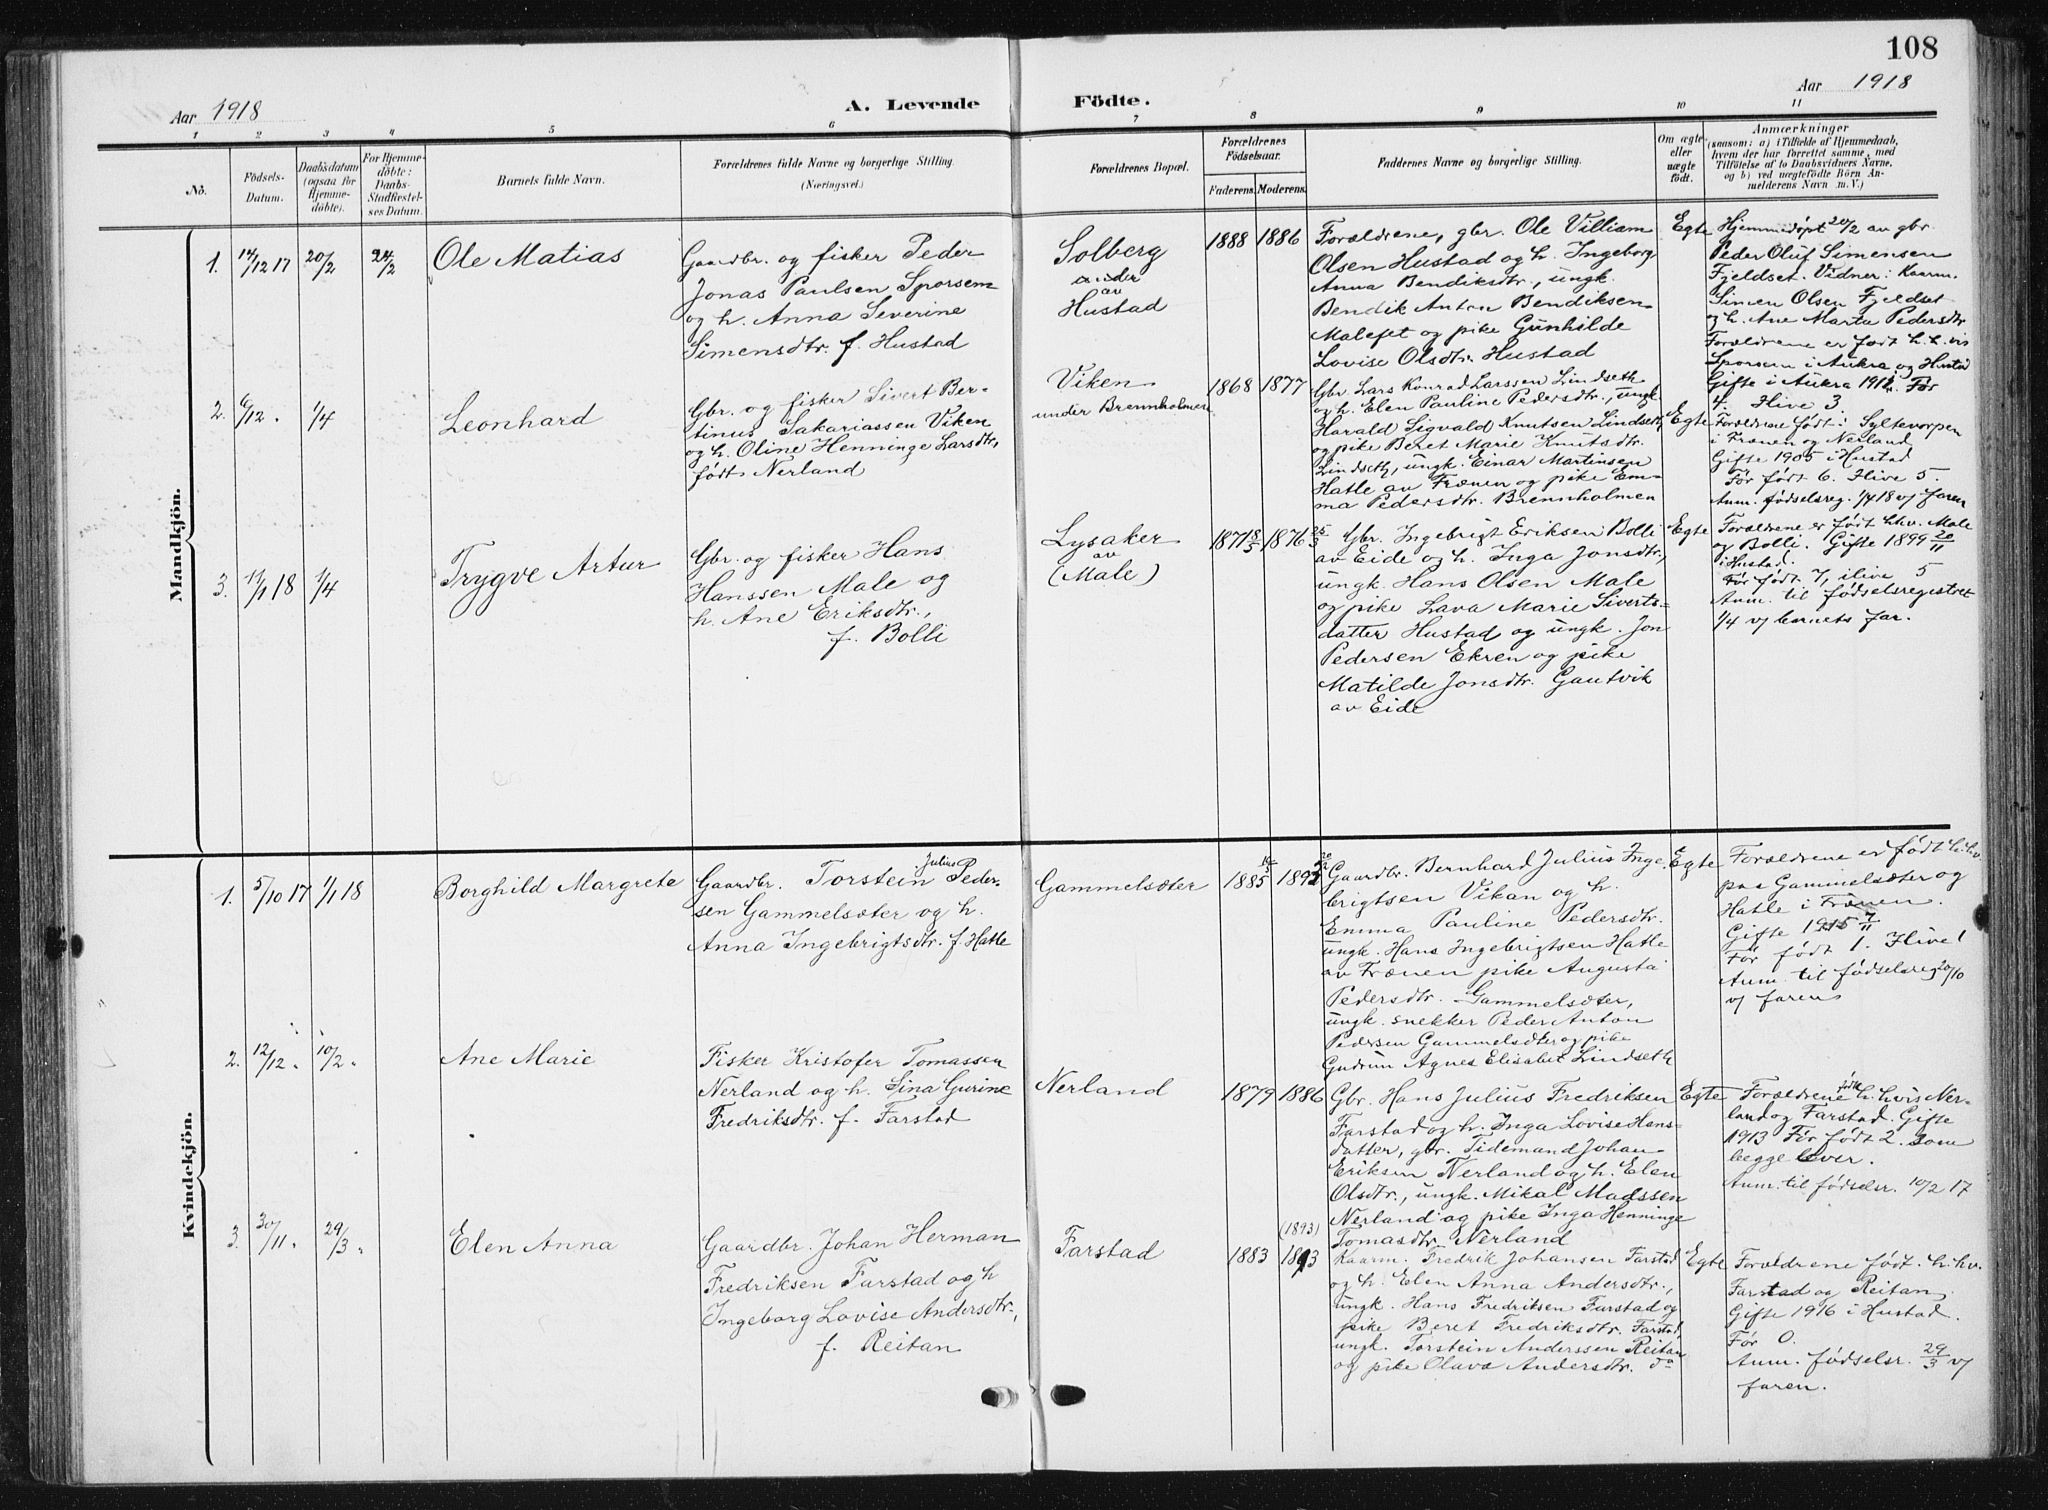 108
Aar 1918
A. Levende
Födte.
Aar 1918
1 2 3 4 5 6 7 8 9 10 11
No.
Födsels-
Datum.
Daabsdatum
(ogsaa for
Hjemme-
döbte).
For Hjemme-
döbte:
Daabs-
Stadfæstel-
ses Datum.
Barnets fulde Navn.
Forældrenes fulde Navne og borgerlige Stilling.
(Næringsvei.)
Forældrenes Bopæl.
Forældrenes
Födselsaar.
Faderens. Moderens.
Faddernes Navne og borgerlige Stilling.
Om ægte
eller
uægte
födt.
Anmærkninger
(saasom: a) i Tilfælde af Hjemmedaab,
hvem der har forrettet samme, med
Tilföielse af to Daabsvidners Navne,
og b) ved uægtefödte Börn An-
melderens Navn m. V.)
Mandkjön.
1. 14/12 17 20/2 24/2
Ole Matias
Gaardbr. og fisker Peder
Jonas Paulsen Sporsem
og h. Anna Severine
Simensdtr. f. Hustad
Solberg
under
av
Hustad
1888 1886
Forældrene, gbr. Ole Villiam
Olsen Hustad og h. Ingeborg
Anna Bendiksdtr., ungk.
Bendik Anton Bendiksen
Malefet og pike Gunhilde
Lovise Olsdtr. Hustad
Egte
Hjemmedøpt 20/2 av gbr.
Peder Oluf Simensen
Fjeldset. Vidner: Kaarm.
Simen Olsen Fjeldset
og h. Ane Marta Pedersdtr
Forældrene er født h.h.vis
Sporsem i Aukra og Hustad
Gifte i Aukra 1912. Før
4. Ilive 3.
2. 6/12 " 1/4
Leonhard
Gbr. og fisker Sivert Ber-
tinus Sakariassen Viken
og h. Oline Henninge Larsdtr,
født Nerland
Viken
under Brennholmen
1868 1877
Gbr. Lars Konrad Larssen Lindseth
og h. Elen Pauline Pedersdtr., ungk
Harald Sigvald Knutsen Lindseth
og pike Beret Marie Knutsdtr.
Lindseth, ungk. Einar Martinsen
Hatle av Frænen og pike Em-
ma Pedersdtr. Brennholmen
Egte
Forældrene født: Syltevorpen
i Frænen og Nerland
Gifte 1905 i Hustad
Før født 6. Ilive 5.
Anm. fødselsreg. 1/4 18 v/ faren
3. 11/1 18 1/4
Trygve Artur
Gbr. og fisker Hans
Hanssen Male og
h. Ane Eriksdtr.,
f. Bolli
Lysaker
av
(Male)
1871 8/5 1876 25/3
Gbr. Ingebrigt Eriksen Bolli
av Eide og h. Inga Jonsdtr,
ungk. Hans Olsen Male
og pike Lava Marie Siverts-
datter Hustad og ungk. Jon
Pedersen Ekren og pike
Matilde Jonsdtr. Gautvik
av Eide
Egte
Forældrene er født hhv. Male
og Bolli. Gifte 1899 20/11
i Hustad.
Før født 7, ilive 5
Anm. til fødselsregistret
1/4 v/ barnets far.
Kvindekjön.
1. 5/10 17 1/1 18
Borghild Margrete
Gaardbr. Torstein Julius Peder-
sen Gammelsæter og h.
Anna Ingebrigtsdtr. f. Hatle
Gammelsæter
1885
Gaardbr. Bernhard Julius Inge-
brigtsen Vikan og h.
Emma Pauline Pedersdtr.
ungk. Hans Ingebrigtsen Hatle
av Frænen pike Augusta
Pedersdtr. Gammelsæter,
ungk. snekker Peder Anton
Pedersen Gammelsæter og pike
Gudrun Agnes Elisabet Lindseth
Egte
Forældrene er født h.hv.
paa Gammelsæter og
Hatle i Frænen.
Gifte 1915 7/11
Før født 1. Ilive 1
Anm. til fødselsreg 20/10
v/ faren
2. 12/12 " 10/2 "
Ane Marie
Fisker Kristofer Tomassen
Nerland og h. Lina Gurine
Fredriksdtr. f. Farstad
Nerland
1879 1886
Gbr. Hans Julius Fredriksen
Farstad og h. Inga Lovise Hans-
datter, gbr. Tidemand Johan
Eriksen Nerland og h. Elen
Olsdtr., ungk. Mikal Madssen
Nerland og pike Inga Henninge
Tomasdtr. Nerland
Egte
Forældrene født h.hvis Ner-
land og Farstad. Gifte
1913 Før født 2. som
begge lever.
Anm. til fødselsr. 10/2 17
3. 30/11 " 29/3 "
Elen Anna
Gaardbr. Johan Herman
Fredriksen Farstad og h
Ingeborg Lovise Andersdtr.,
f. Reitan
Farstad
1883 (1893) 1893
Kaarm. Fredrik Johansen Farstad
og h. Elen Anna Andersdtr.,
ungk. Hans Fredriksen Farstad og
pike Beret Fredriksdtr. Farstad,
ungk. Torstein Anderssen Reitan
og pike Olava Andersdtr. do
Egte
Forældrene født. h.hv.
Farstad og Reitan
Gifte 1916 i Hustad.
Før 0.
Anm. fødselsr. 29/3 v/
faren.